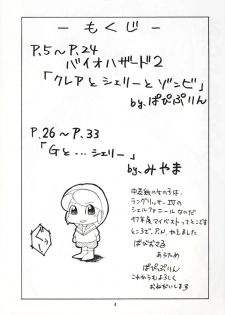 ーもくじー
P.5～P.24
バイオハザード2
「クレアとシェリーとゾンビ」
by.ぱぴぷりん
P.26～P.33
「Gと…シェリー」
by.みやま
中表紙の女の子は、
ラングリッサーIVの
シェルファニールなのだ
ぱぴぷりん
これからもよろしく
おねがいします
4